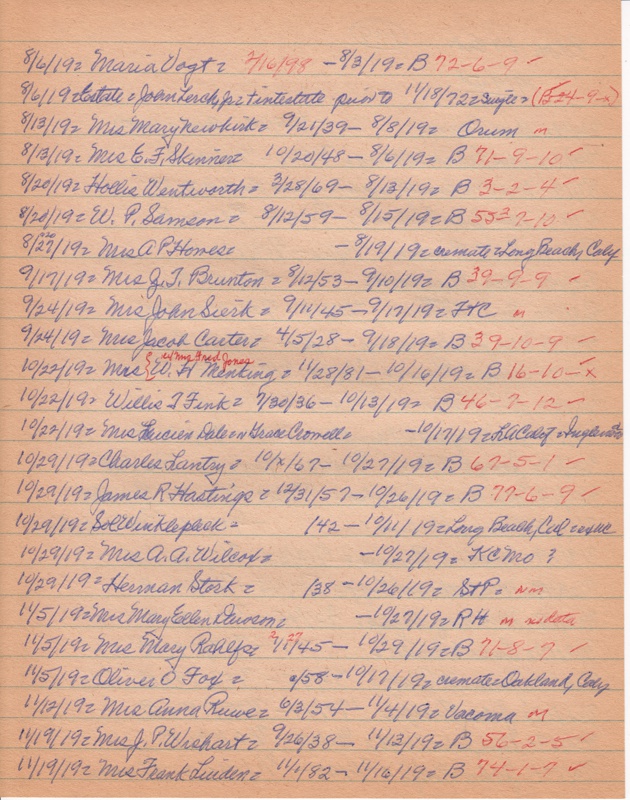 8/6/19= Maria Vogt= 7/16/98 - 8/3/19= B 72-6-9 ✓
8/6/19= Estate= John Lerch, Jr= intestate prior to 11/18/72= single= (B 24-9-x)
8/13/19= Mrs Mary Newkirk= 9/21/39- 8/8/19= Orum m
8/13/19= Mrs E. F. Skinner= 10/20/48- 8/6/19= B 71-9-10 ✓
8/20/19= Hollis Wentworth= 3/28/69- 8/13/19= B 3-2-4 ✓
8/20/19= W. P. Samson= 8/12/59- 8/15/19= B 7-10 ✓
8/27/19= Mrs A P Howes= -8/19/19= cremate= Long Beach, Caly
9/17/19= Mrs J. T. Brunton= 8/12/53- 9/10/19= B 39-9-9 ✓
9/24/19= Mrs John Sierk= 9/11/45- 9/17/19= FtC m
9/24/19= Mrs Jacob Carter= 4/5/28- 9/18/19= B 39-10-9 ✓
w/ Mrs Fred Jones
10/22/19= Mrs W. H Menking= 11/28/81- 10/16/19= B 16-10-x
10/22/19= Willis T Fink= 7/30/36- 10/13/19= B 46-7-12 ✓
10/22/19= Mrs Lucien Dale= n Grace Crowell= -10/17/19=
10/29/19= Charles Lantry= 10/x/67- 10/27/19= B 67-5-1 ✓
10/29/19= James R Hastings= 12/31/57- 10/26/19= B 77-6-9 ✓
10/29/19= Sol Winklepleck= /42- 10/11/19= Long Beach, Cal=
10/29/19= Mrs A. A. Wilcox= -10/27/19= KC Mo ?
10/29/19= Herman Stork= /38- 10/26/19= StP= nm
11/5/19= Mrs Mary Ellen Dawson= -10/27/19= RH m no data
11/5/19= Mrs Mary Rahlfs= /45- 10/29/19= B 71-8-7 ✓
11/5/19= Oliver O Fox= /58- 10/17/19= cremate= Oakland, Caly
11/12/19= Mrs Anna Ruwe= 6/3/54- 11/4/19= Vacoma m
11/19/19= Mrs J. P. Wishart= 9/26/38- 11/13/19= B 56-2-5 ✓
11/19/19= Mrs Frank Linden= 11/1/82- 11/16/19= B 74-1-7 ✓